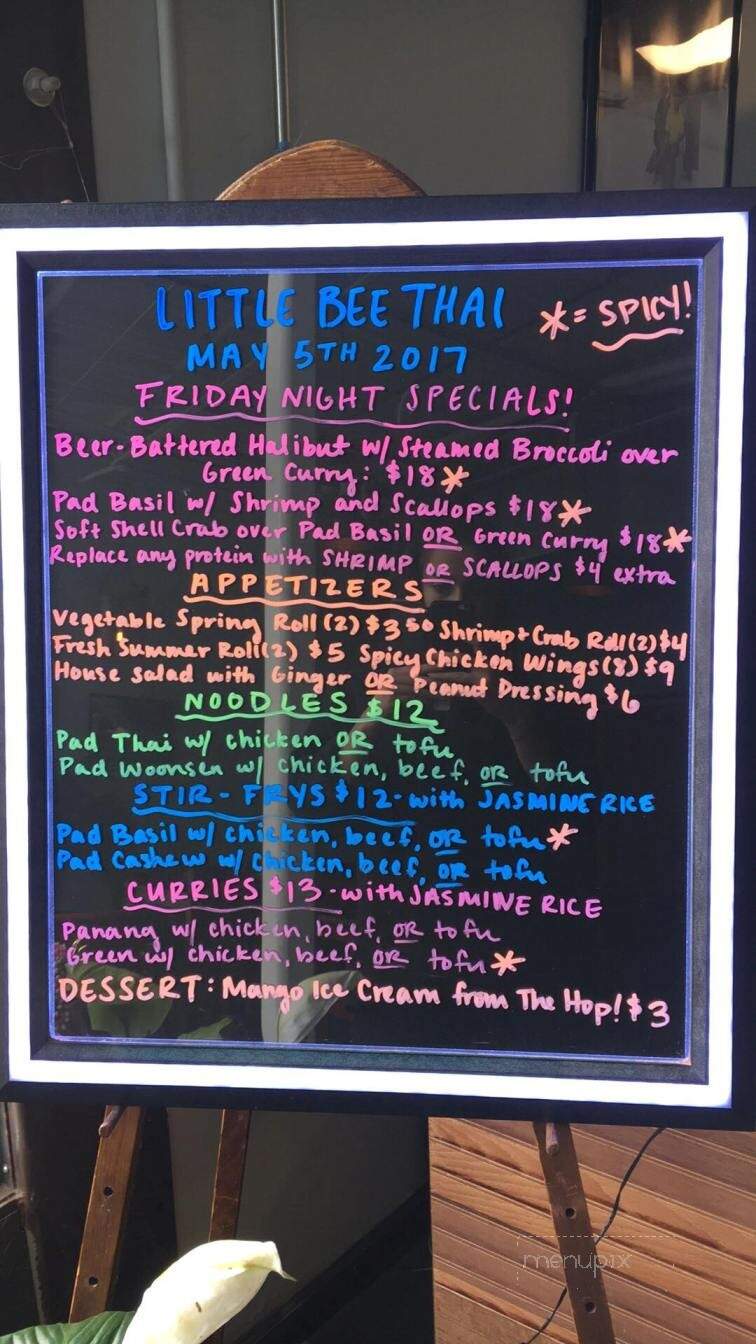 LITTLE BEE THAI
* = SPICY!
MAY 5TH 2017
FRIDAY NIGHT SPECIALS!
Beer-Battered Halibut w/ Steamed Broccoli over
Green Curry: $18*
Pad Basil w/ Shrimp and Scallops $18*
Soft Shell Crab over Pad Basil OR Green Curry $18*
Replace any protein with SHRIMP OR SCALLOPS $4 extra
APPETIZERS
Vegetable Spring Roll (2) $3 50 Shrimp + Crab Roll (2) $4
Fresh Summer Roll (2) $5 Spicy Chicken Wings (8) $9
House Salad with Ginger OR Peanut Dressing $6
NOODLES $12
Pad Thai w/ chicken OR tofu
Pad Woonsen w/ chicken, beef, OR tofu
STIR-FRYS $12-with JASMINE RICE
Pad Basil w/ chicken, beef, OR tofu*
Pad Cashew w/ chicken, beef, OR tofu
CURRIES $13-with JASMINE RICE
Panang w/ chicken, beef, OR tofu
Green w/ chicken, beef, OR tofu*
DESSERT: Mango Ice Cream from The Hop! $3
menupix